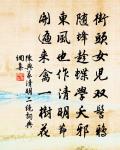 街頭女兒雙髻鴉
隨蜂趁蝶學夭邪
東風也作清明節
開遍來禽一樹花
陳與義清明二絕詞典
網集